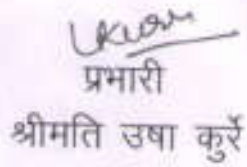 प्रभारी
श्रीमति उषा कुर्रे